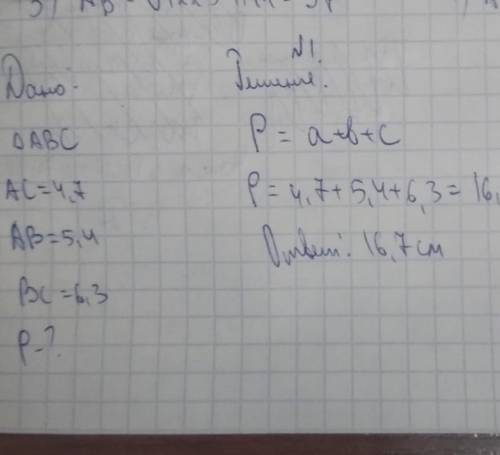 №1.
Дано: Решение:
△ABC P = a+b+c
AC=4,7 P= 4,7+5,4+6,3= 16,
AB=5,4 Ответ: 16,7 см
BC=6,3
P-?